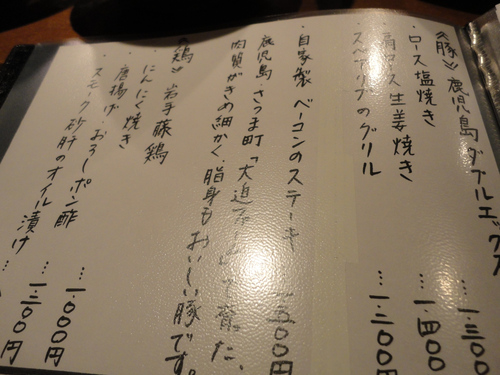 《豚》鹿児島ダブルエックス
ロース塩焼き … 一、三〇〇
肩ロース生姜焼き … 一、四〇〇
スペアリブのグリル … 一、三〇〇円
自家製ベーコンのステーキ 五〇〇円
鹿児島 さつま町「大迫
肉質がきめ細かく、脂身もおいしい豚です。
《鶏》岩手藤鶏
にんにく焼き
唐揚げ おろしポン酢 … 一、〇〇〇円
スモーク砂肝のオイル漬け … 一、三〇〇円